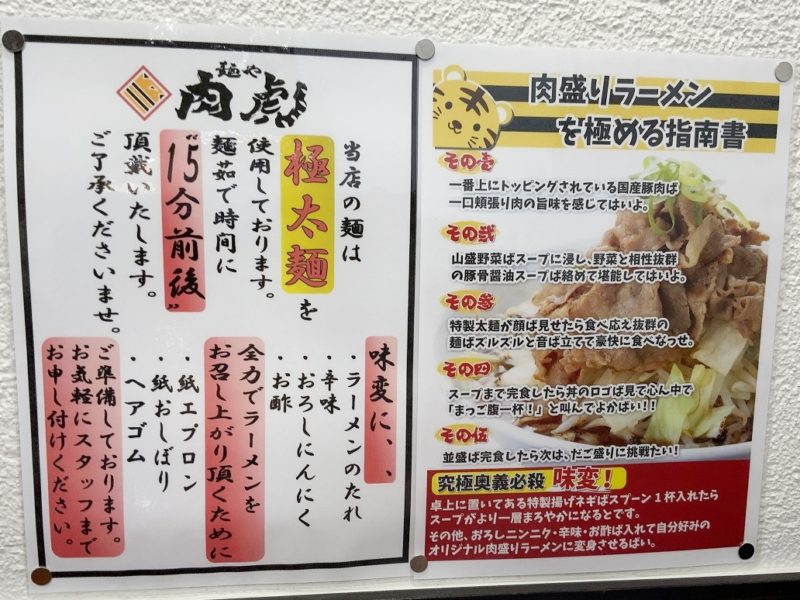 麺や
肉虎
当店の麺は
極太麺を
使用しております。
麺茹で時間に
"15分前後"
頂戴いたします。
ご了承くださいませ。
味変に、、
・ラーメンのたれ
・辛味
・おろしにんにく
・お酢
全力でラーメンを
お召し上がり頂くために
・紙エプロン
・紙おしぼり
・ヘアゴム
ご準備しております。
お気軽にスタッフまで
お申し付けください。
肉盛りラーメン
を極める指南書
その壱
一番上にトッピングされている国産豚肉ば
一口頬張り肉の旨味を感じてはいよ。
その弐
山盛野菜ばスープに浸し、野菜と相性抜群
の豚骨醤油スープば絡めて堪能してはいよ。
その参
特製太麺が顔ば見せたら食べ応え抜群の
麺ばズルズルと音ば立てて豪快に食べなっせ。
その四
スープまで完食したら丼のロゴば見て心ん中で
「まっご腹一杯！」と叫んでよかばい！！
その伍
並盛ば完食したら次は、だご盛りに挑戦たい！
究極奥義必殺 味変！
卓上に置いてある特製揚げネギばスプーン1杯入れたら
スープがより一層まろやかになるとです。
その他、おろしニンニク・辛味・お酢ば入れて自分好みの
オリジナル肉盛りラーメンに変身させるばい。